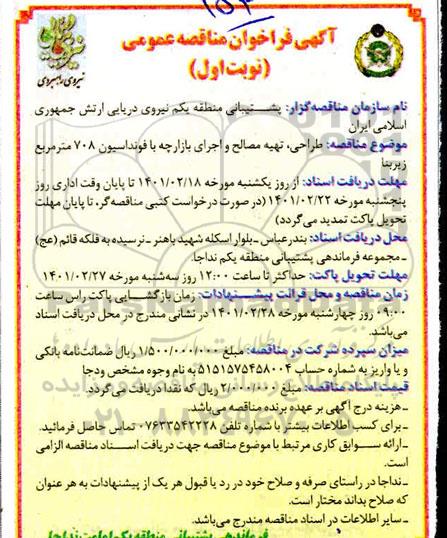 ۱۵۳
آگهی فراخوان مناقصه عمومی
(نوبت اول)
نیروی راهبردی
نام سازمان مناقصه‌گزار: پشتیبانی منطقه یکم نیروی دریایی ارتش جمهوری
اسلامی ایران
موضوع مناقصه: طراحی، تهیه مصالح و اجرای بازارچه با فونداسیون ۷۰۸ مترمربع
زیربنا
مهلت دریافت اسناد: از روز یکشنبه مورخه ۱۴۰۱/۰۲/۱۸ تا پایان وقت اداری روز
پنجشنبه مورخه ۱۴۰۱/۰۲/۲۲ (در صورت درخواست کتبی مناقصه‌گر، تا پایان مهلت
تحویل پاکت تمدید می‌گردد)
محل دریافت اسناد: بندرعباس ـ بلوار اسکله شهید باهنر ـ نرسیده به فلکه قائم (عج)
ـ مجموعه فرماندهی پشتیبانی منطقه یکم نداجا.
مهلت تحویل پاکت: حداکثر تا ساعت ۱۲:۰۰ روز سه‌شنبه مورخه ۱۴۰۱/۰۲/۲۷
زمان مناقصه و محل قرائت پیشنهادات: زمان بازگشایی پاکت راس ساعت
۰۹:۰۰ روز چهارشنبه مورخه ۱۴۰۱/۰۲/۲۸ در نشانی مندرج در محل دریافت اسناد
می‌باشد.
میزان سپرده شرکت در مناقصه: مبلغ ۱/۵۰۰/۰۰۰/۰۰۰ ریال ضمانت‌نامه بانکی
و یا واریز به شماره حساب ۵۱۵۱۵۷۵۴۵۸۰۰۴ به نام وجوه مشخص ودجا
قیمت اسناد مناقصه: مبلغ ۲/۰۰۰/۰۰۰ ریال که نقدا دریافت می‌گردد.
ـ هزینه درج آگهی بر عهده برنده مناقصه می‌باشد.
ـ برای کسب اطلاعات بیشتر با شماره تلفن ۰۷۶۳۳۵۴۲۲۲۸ تماس حاصل فرمائید.
ـ ارائه سوابق کاری مرتبط با موضوع مناقصه جهت دریافت اسناد مناقصه الزامی
است.
ـ نداجا در راستای صرفه و صلاح خود در رد یا قبول هر یک از پیشنهادات به هر عنوان
که صلاح بداند مختار است.
ـ سایر اطلاعات در اسناد مناقصه مندرج می‌باشد.
فرماندهی پشتیبانی منطقه یکم امامت نداجا